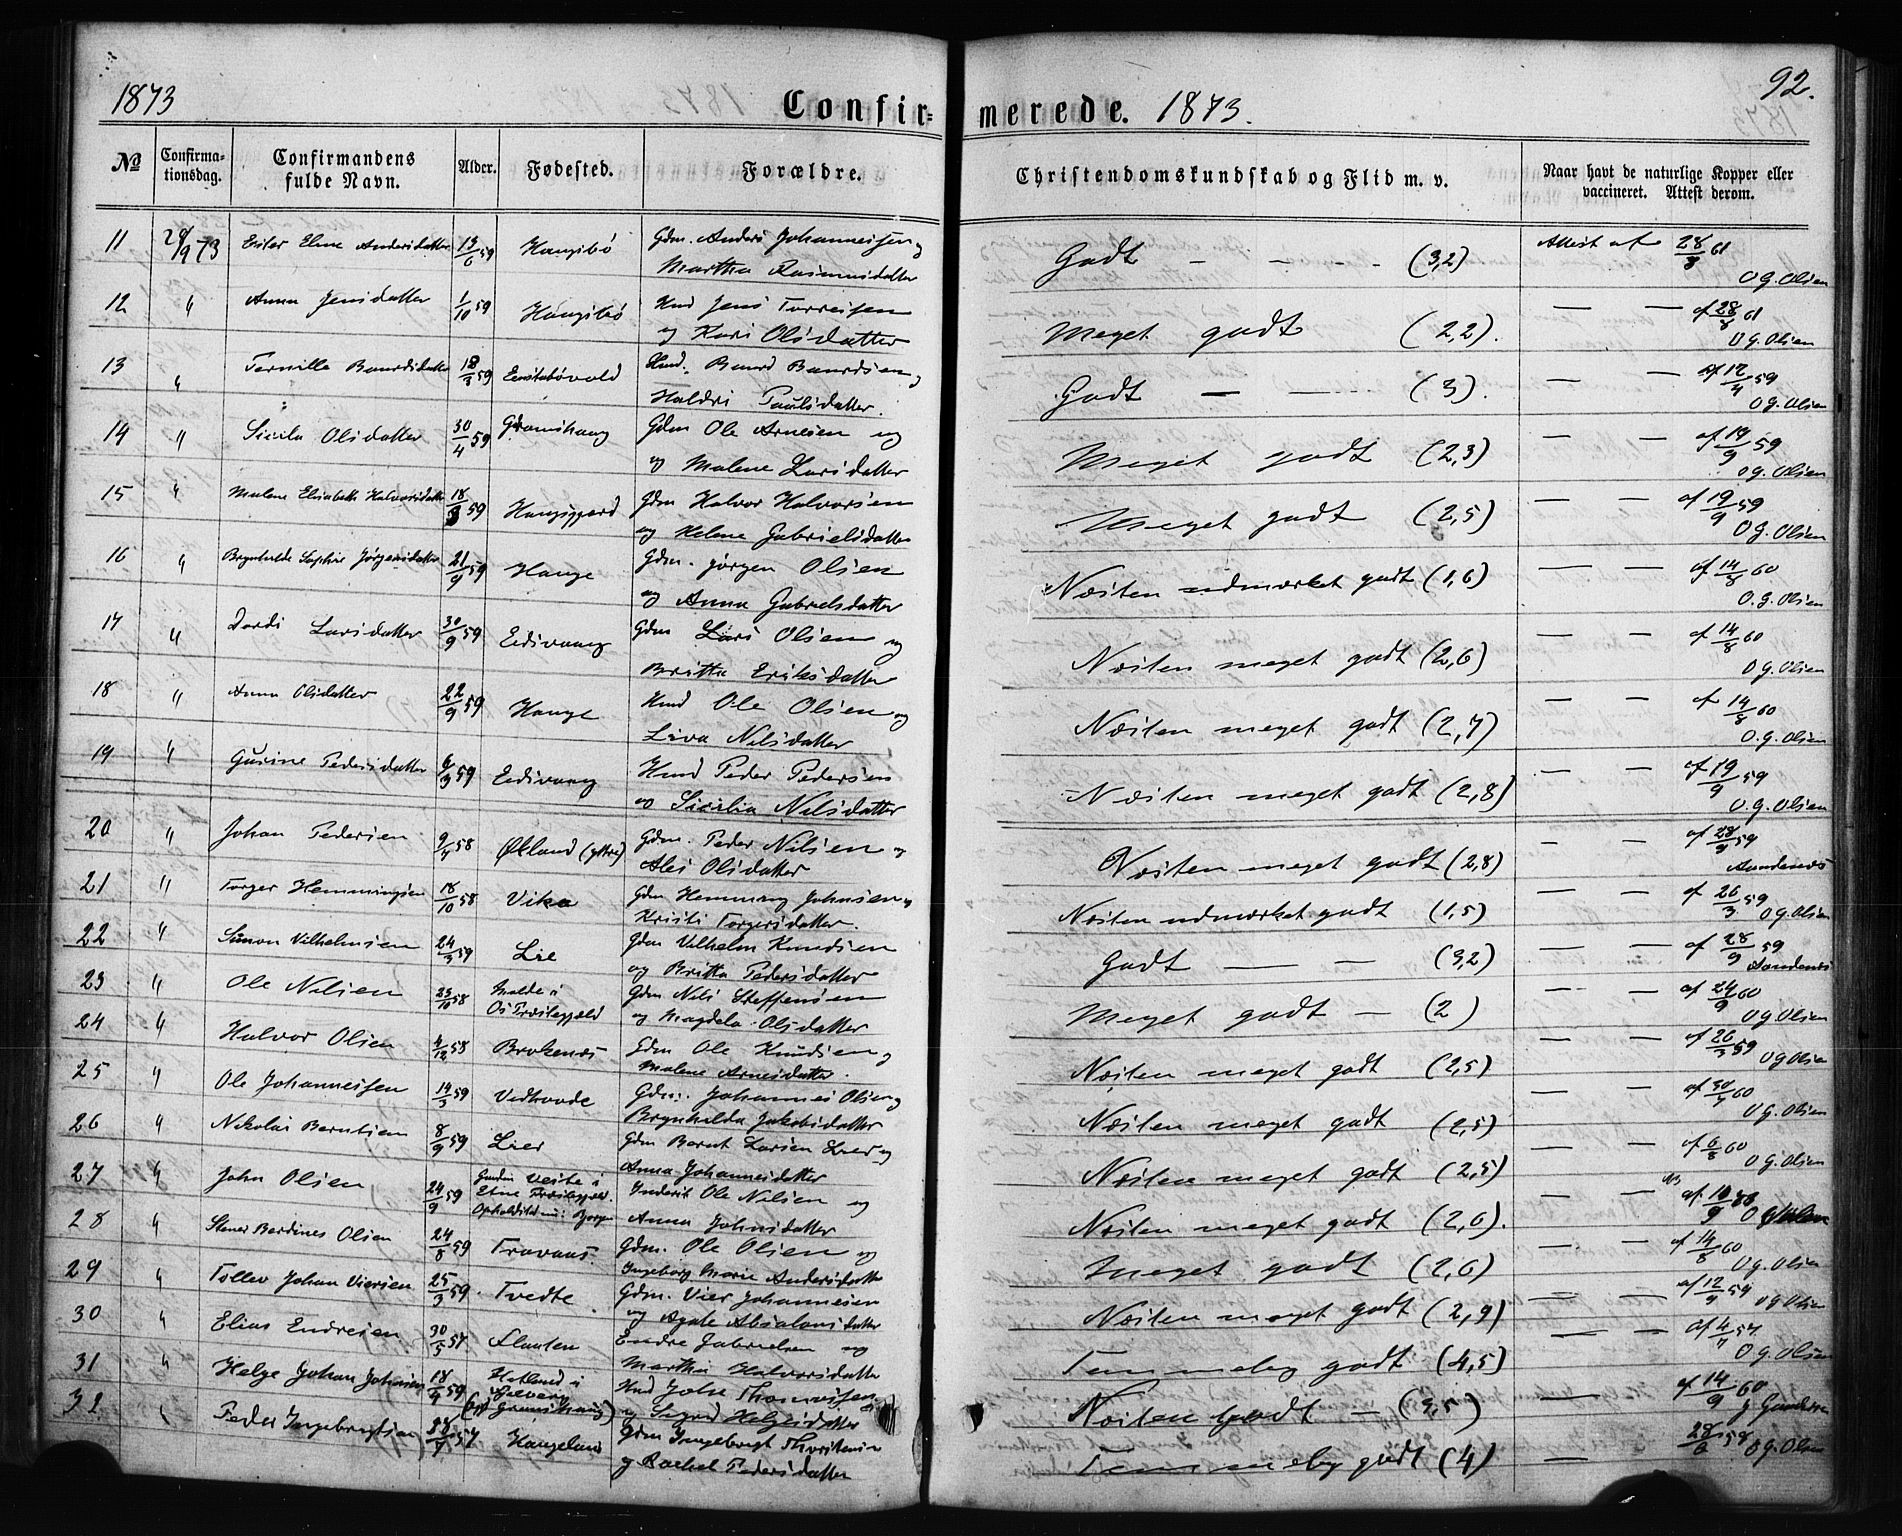 1873
92.
Confir= merede. 1873.
No Confirma-tionsdag. Confirmandens fulde Navn. Alder. Fødested. Forældre. Christendomskundskab og Flid m. v. Naar havt de naturlige Kopper eller vaccineret. Attest derom.
11 73 Elene Andersdatter 59 Haugsbø Gdm. Anders Johannesen og
Martha Rasmusdatter Godt - - - - (3,2) Attest af 28/8 61 O G. Olsen
12 " Anna Jensdatter 1/10 59 Haugsbø Hmd Jens Torresen
og Kari Olsdatter Meget godt (2,2). — — af 28/8 61 O G. Olsen
13 " Pernille Baardsdatter 18/3 59 Hmd. Baard Baardsen og
Haldri Paulsdatter. Godt — - (3). — — af 12/4 59 O G. Olsen
14 " Sicila Olsdatter 30/4 59 Gramshaug Gdm Ole Arnesen og
og Malene Larsdatter Meget godt (2,3) — — af 19/9 59 O G. Olsen
15 " Malene Elisabeth Halvorsdatter 59 Haugsgjærd Gdm Halvor Halvorsen
og Helene Gabrielsdatter Meget godt (2,5) — — af 19/9 59 O G. Olsen
16 " Brynhilde Sophie Jørgensdatter 21/9 59 Hauge Gdm. Jørgen Olsen
og Anna Gabrielsdatter Næsten udmærket godt (1,6) — — af 14/8 60 O. G. Olsen
17 " Dordi Larsdatter 30/9 59 Eidsvaag Gdm Lars Olsen og
Britha Eriksdatter Næsten meget godt (2,6) — — af 14/8 60 O G. Olsen
18 " Anna Olsdatter 22/9 59 Hauge Hmd Ole Olsen og
Liva Nilsdatter Næsten meget godt (2,7) — — af 14/8 60 O. G. Olsen
19 " Gurine Pedersdatter 59 Eidsvaag Hmd Peder Pedersen
og Sicilia Nilsdatter Næsten meget godt (2,8) — — af 19/9 59 O. G. Olsen
20 " Johan Pedersen 58 Økland (yttre) Gdm. Peder Nilsen og
Olsdatter Næsten meget godt (2,8) — — af 28/9 59
21 " Torger Hemmingsen 18/10 58 Vika Gdm Hemming Johnsen og
Kristi Torgersdatter. Næsten udmærket godt (1,5) — — af 26/3 59 O G. Olsen
22 " Simon Vilhelmsen 24/3 59 Lie Gdm Vilhelm Knudsen
og Britha Pedersdatter Godt — — (3,2) — — af 28/9 59
23 " Ole Nilsen 58 Molde i
Os Præstegjæld Gdm Nils Steffensen
og Magdela Olsdatter Meget godt — (2) — — af 24/9 60 O G. Olsen
24 " Halvor Olsen 4/12 58 Brokenæs Gdm Ole Knudsen og
Malene Arnesdatter. Næsten meget godt (2,5) — — af 26/3 59 O G Olsen
25 " Ole Johannessen 14/3 59 Vedhovde Gdm. Johannes Olsen og
Brynhilda Jakobsdatter Næsten meget godt (2,5) — — 60 O G. Olsen
26 " Nikolai Berntsen 8/9 59 Lier Gdm Bernt Larsen Lier og
Anna Johannesdatter Næsten meget godt (2,5) — — 60 O G. Olsen
27 " John Olsen 24/9 59 i
Etne Præstegjæld. Inderst Ole Nilsen og
Anna Johnsdatter Næsten meget godt (2,6). — —
28 " Bardines Olsen 24/8 59 Travaas. Gdm. Ole Olsen og
Ingeborg Marie Andersdatter Meget godt (2,6) — — af 14/8 60 O g. Olsen
29 " Tollev Johan Viersen 25/3 59. Tvedte Gdm. Vier Johannesen
og Agate Absalonsdatter Næsten meget godt (2,9) — — 59 O G Olsen
30 " Elias Endresen 30/5 57 Flaaten Endre Gabrielsen og
Martha Halvorsdatter Temmelig godt (4,5) — — 57. O G. Olsen
31 " Helge Johan Johnsen 59 Hetland i
(Gramshaug) Hmd John Thomassen
og Sigrid Helgesdatter Næsten godt — (3,5) — — af 14/9 60
32 " Peder Ingebregtsen 57 Haugeland Gdm Ingebregt Thorstensen
og Rachel Pedersdatter Temmelig godt (4) — — 58 O G. Olsen